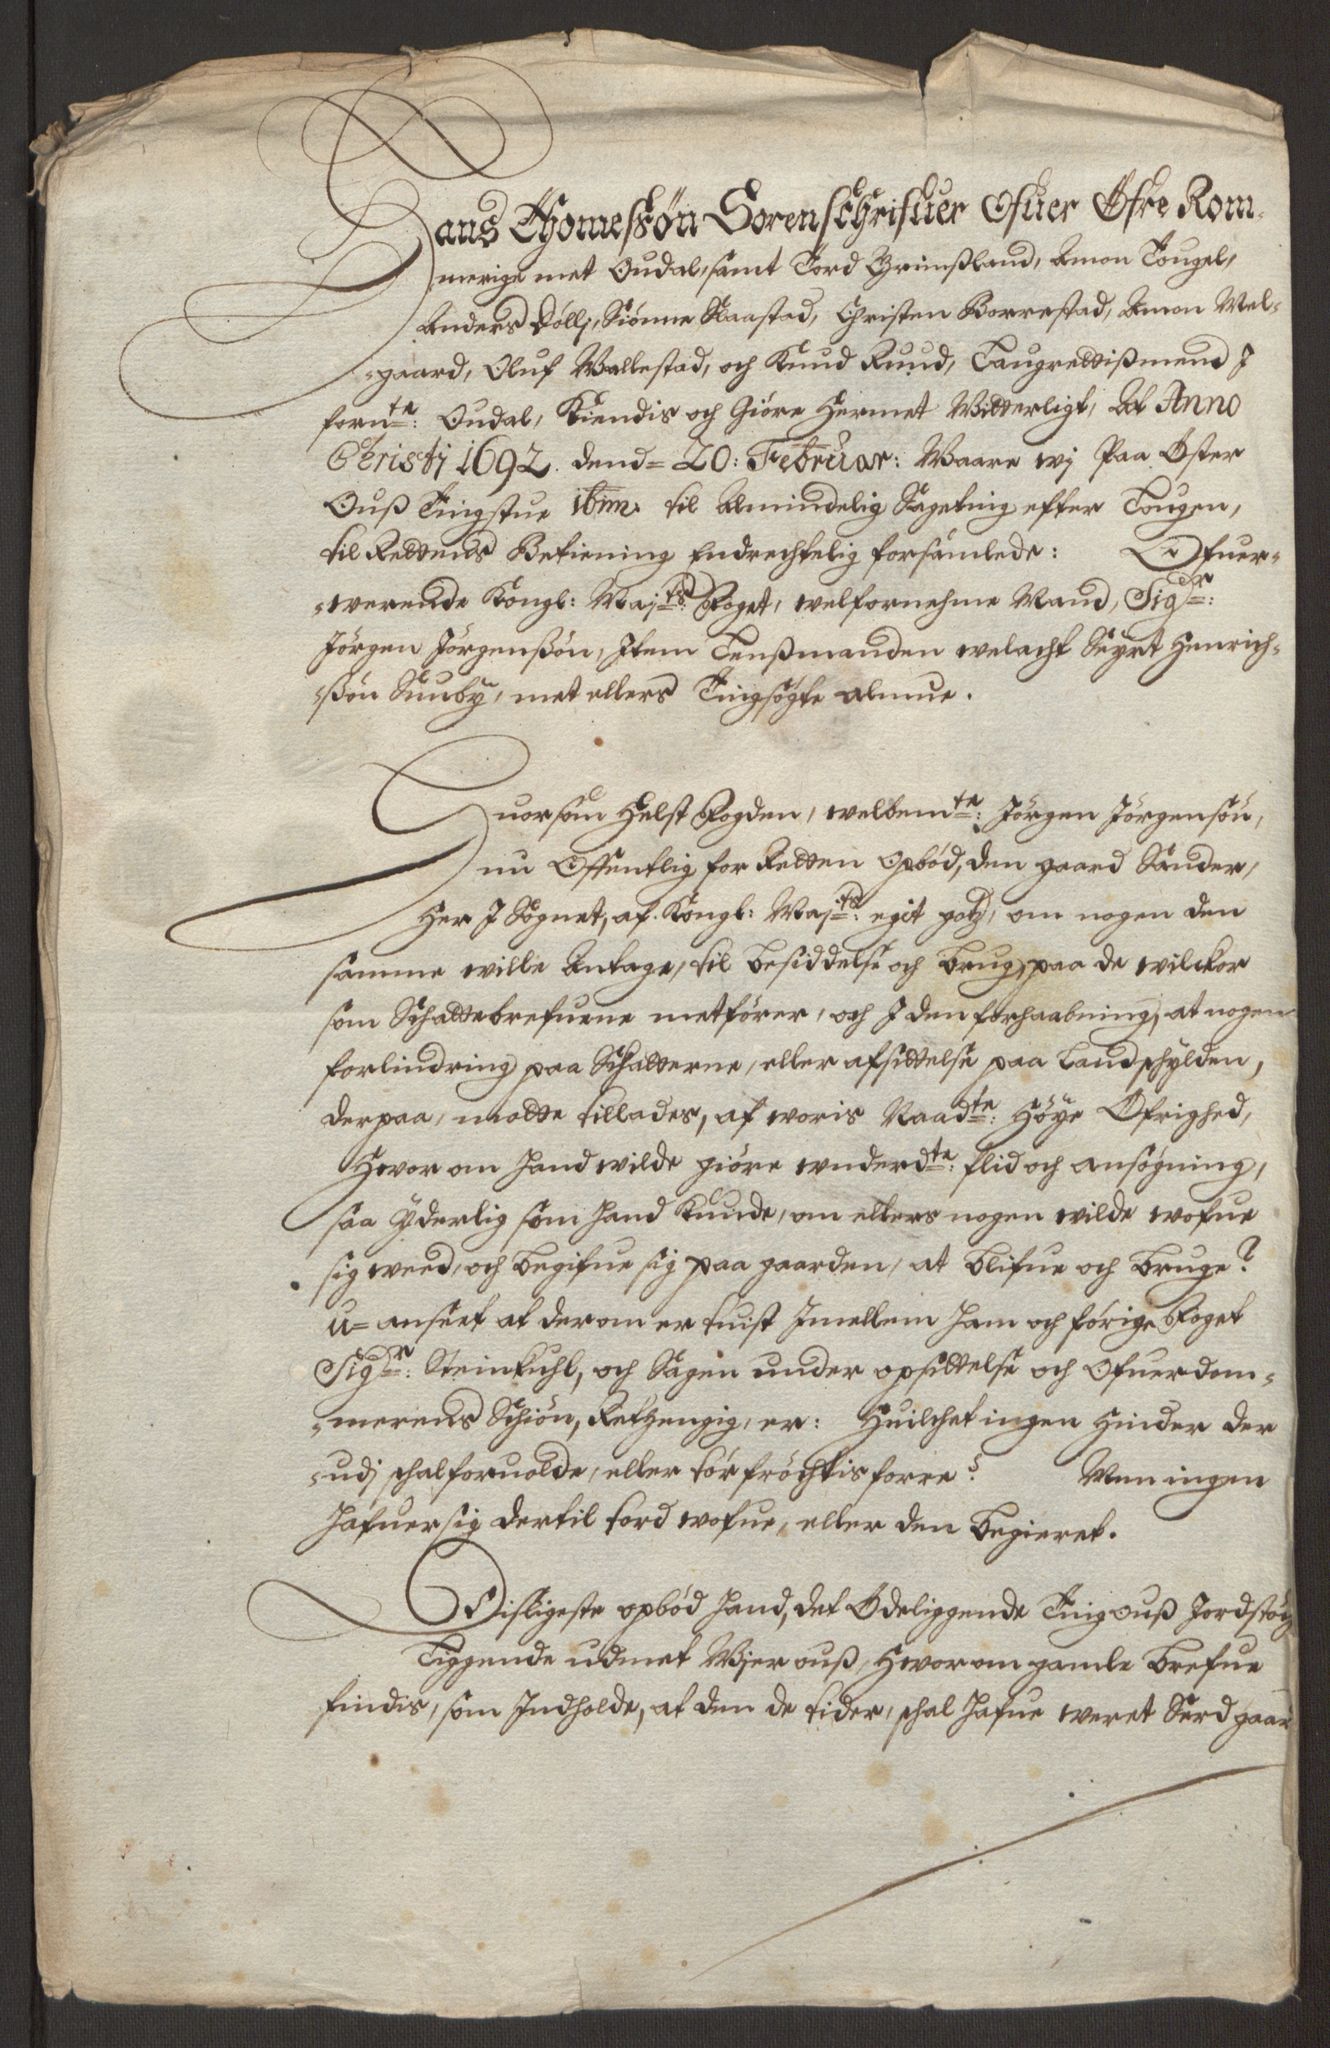 Hans Thomeßøn Sorenschrifuer Ofuer Øfre Rom-
merige met Oudal, samt Tord Grimßland, Amon Tougel,
Anders Døllj, Siønne Staastad, Christen Borrestad, Amon Mel-
gaard, Oluf Vallestad, och Knud Ruud, Laugrettißmend J
fornte: Oudal, Kiendis och Giøre Hermet Witterligt, At Anno
Christj 1692. dend= 20: Februar: Waare wj Paa Øster
Ouß Tingstue ibm. til Almindelig Sageting efter Lougen,
til Rettens Betiening Endrechtelig forsamlede: Ofuer-
werende Kongl: Majts: Foget, welfornehme Mand, Sigr:
Jørgen Jørgenßøn, Item Lenßmanden welacht Seyrt Henrich-
ßøn Sunby, met ellers Tingsøgte almue.
Huorsom Helst Fogden, welbemte: Jørgen Jørgensøn,
nu Offentlig for Retten Opbød, den gaard Sander,
Her J Sognet, af Kongl: Majts: egit gotz, om nogen den
samme wille Antage, til besiddelse och brug, paa de wilckor
som Schattebrefuene metfører, och J den forhaabning, at nogen
forlindring paa Schatterne, eller afsettelse paa Landschylden,
derpaa, motte tillades, af woris Naadte: Høye Øfrighed,
Hworom hand wilde giøre underdte: flid och ansøgning,
saa Yderlig som hand kunde, om ellers nogen wilde wofue
sig weed, och begifue sig paa gaarden, at blifue och bruge?
u= anseet at derom er tuist Imellem ham och førige Foget
Sigr: Steinkuhl, och Sagen under opsettelse och Ofuerdom-
merens Schiøn, Rethengig, er: Huilchet ingen Hinder der
udj schal foruolde, eller tør frøchtis forre? Men ingen
hafuer sig dertil tord wofue, eller den begieret.
Disligeste opbød hand, det Ødeliggende Ting Ouß Jordstøch
Liggende udmet Mier ouß, Hworom gamle brefue
findis, som Indholde, at den de tider, schal hafue weret Serd gaar